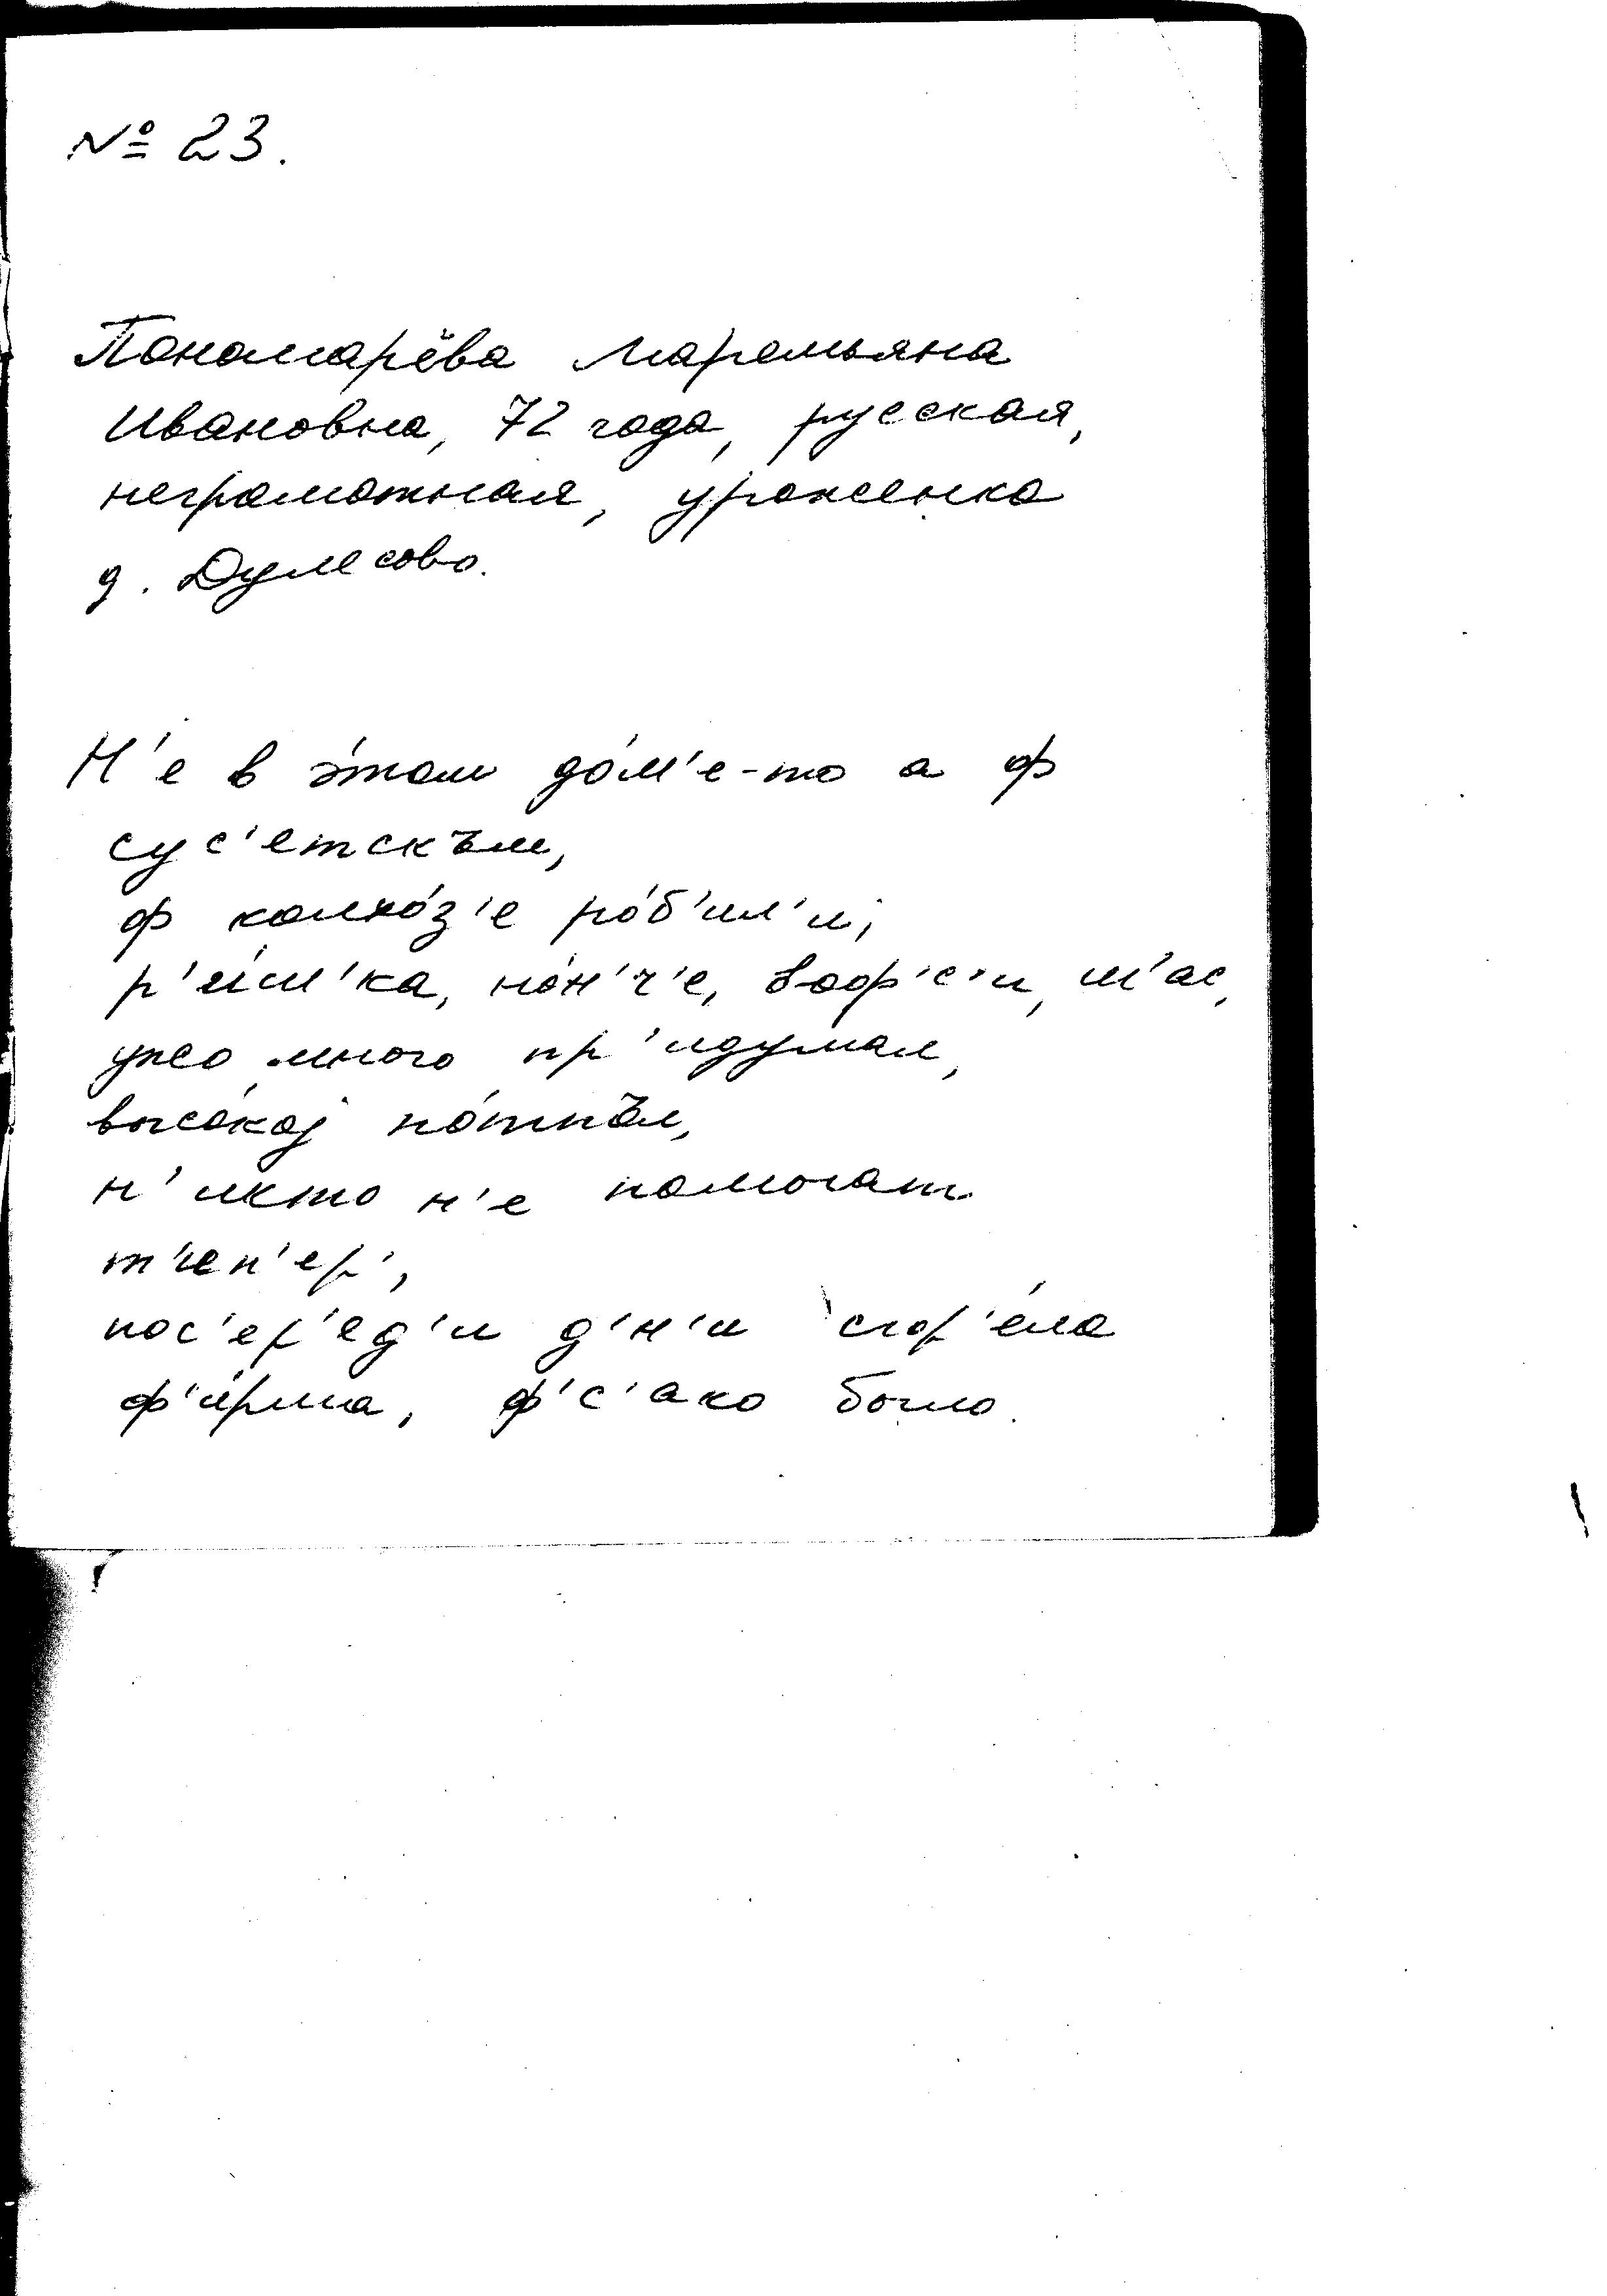 № 23.
Пономарёва Маремьяна
Ивановна, 72 года, русская,
неграмотная, уроженка
д. Дулесово.
Н'е в э́том до́м'е-то а ф
сус'етскъм,
ф колхо́з'е ро́б'ил'и,
р'и́м'ка, но́н'ч'е, воф'с'и, м'ас,
ужо много пр'идумал,
высо́кој по́тпъл,
н'икто н'е помогат
т'еп'ер',
пос'ер'ед'и д'н'и сгор'е́ла
ф'и́рма, ф'с'ако было.